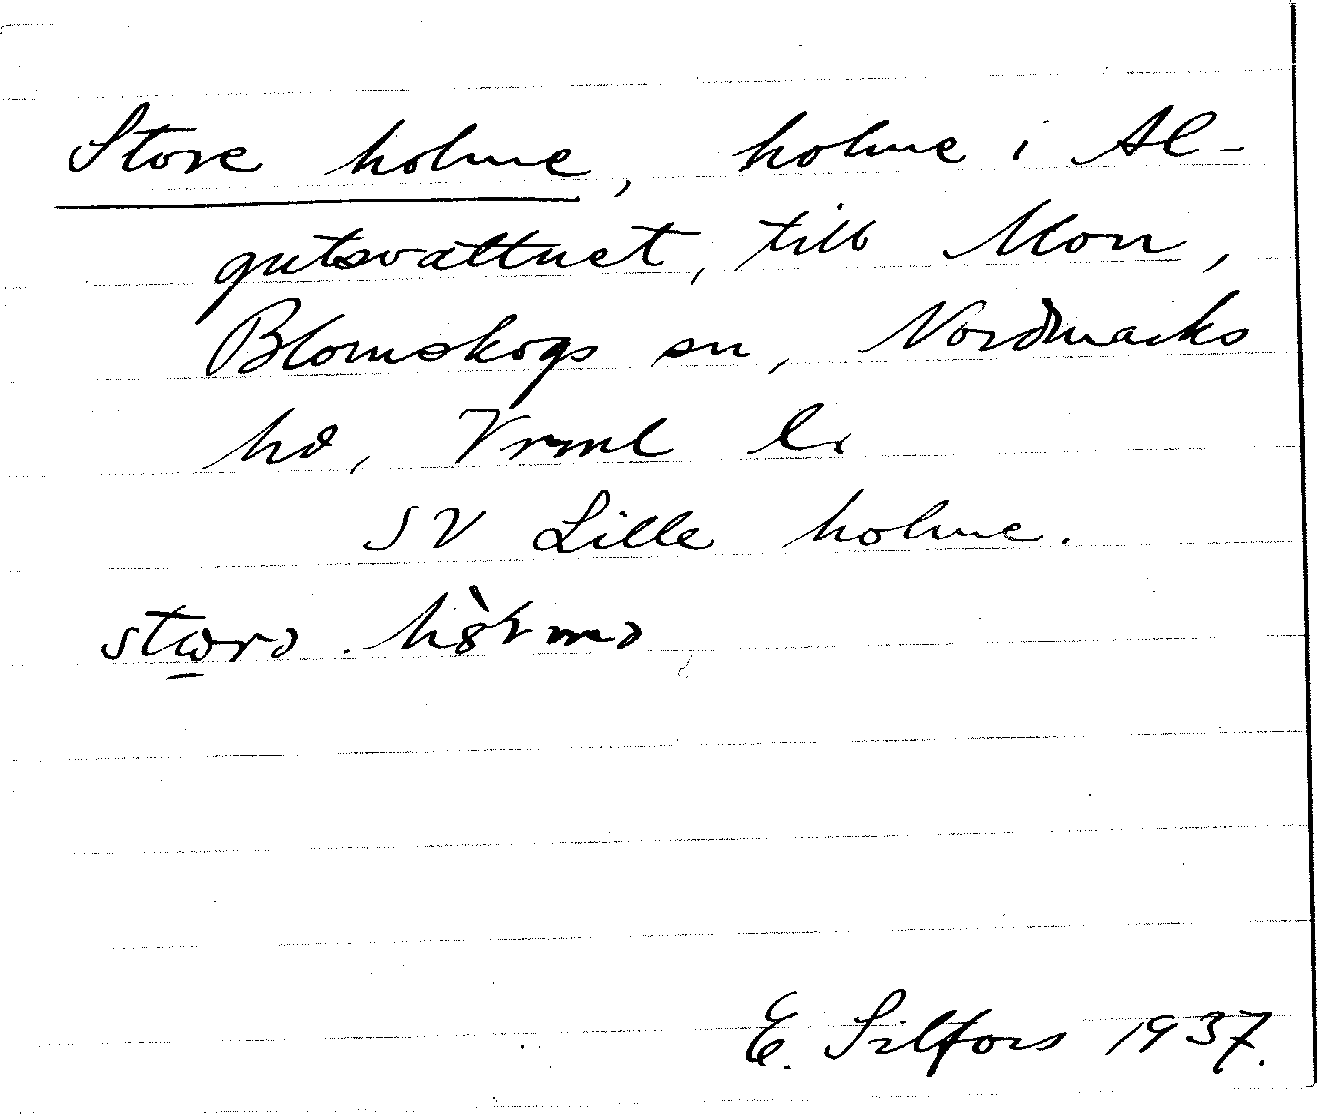 Store holme, holme i Al-
gutsvattnet, till Mon,
Blomskogs sn, Nordmarks
hd, Vrml l.
SV Lille holme.
E. Silfors 1937.